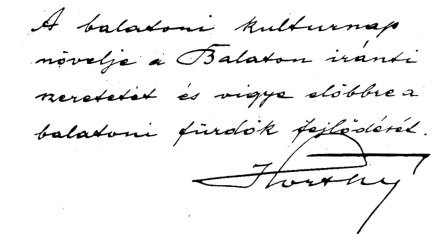 A balatoni kulturnap
növelje a Balaton iránti
szeretetét és vigye előbbre a
balatoni fürdők fejlődését.
Horthy